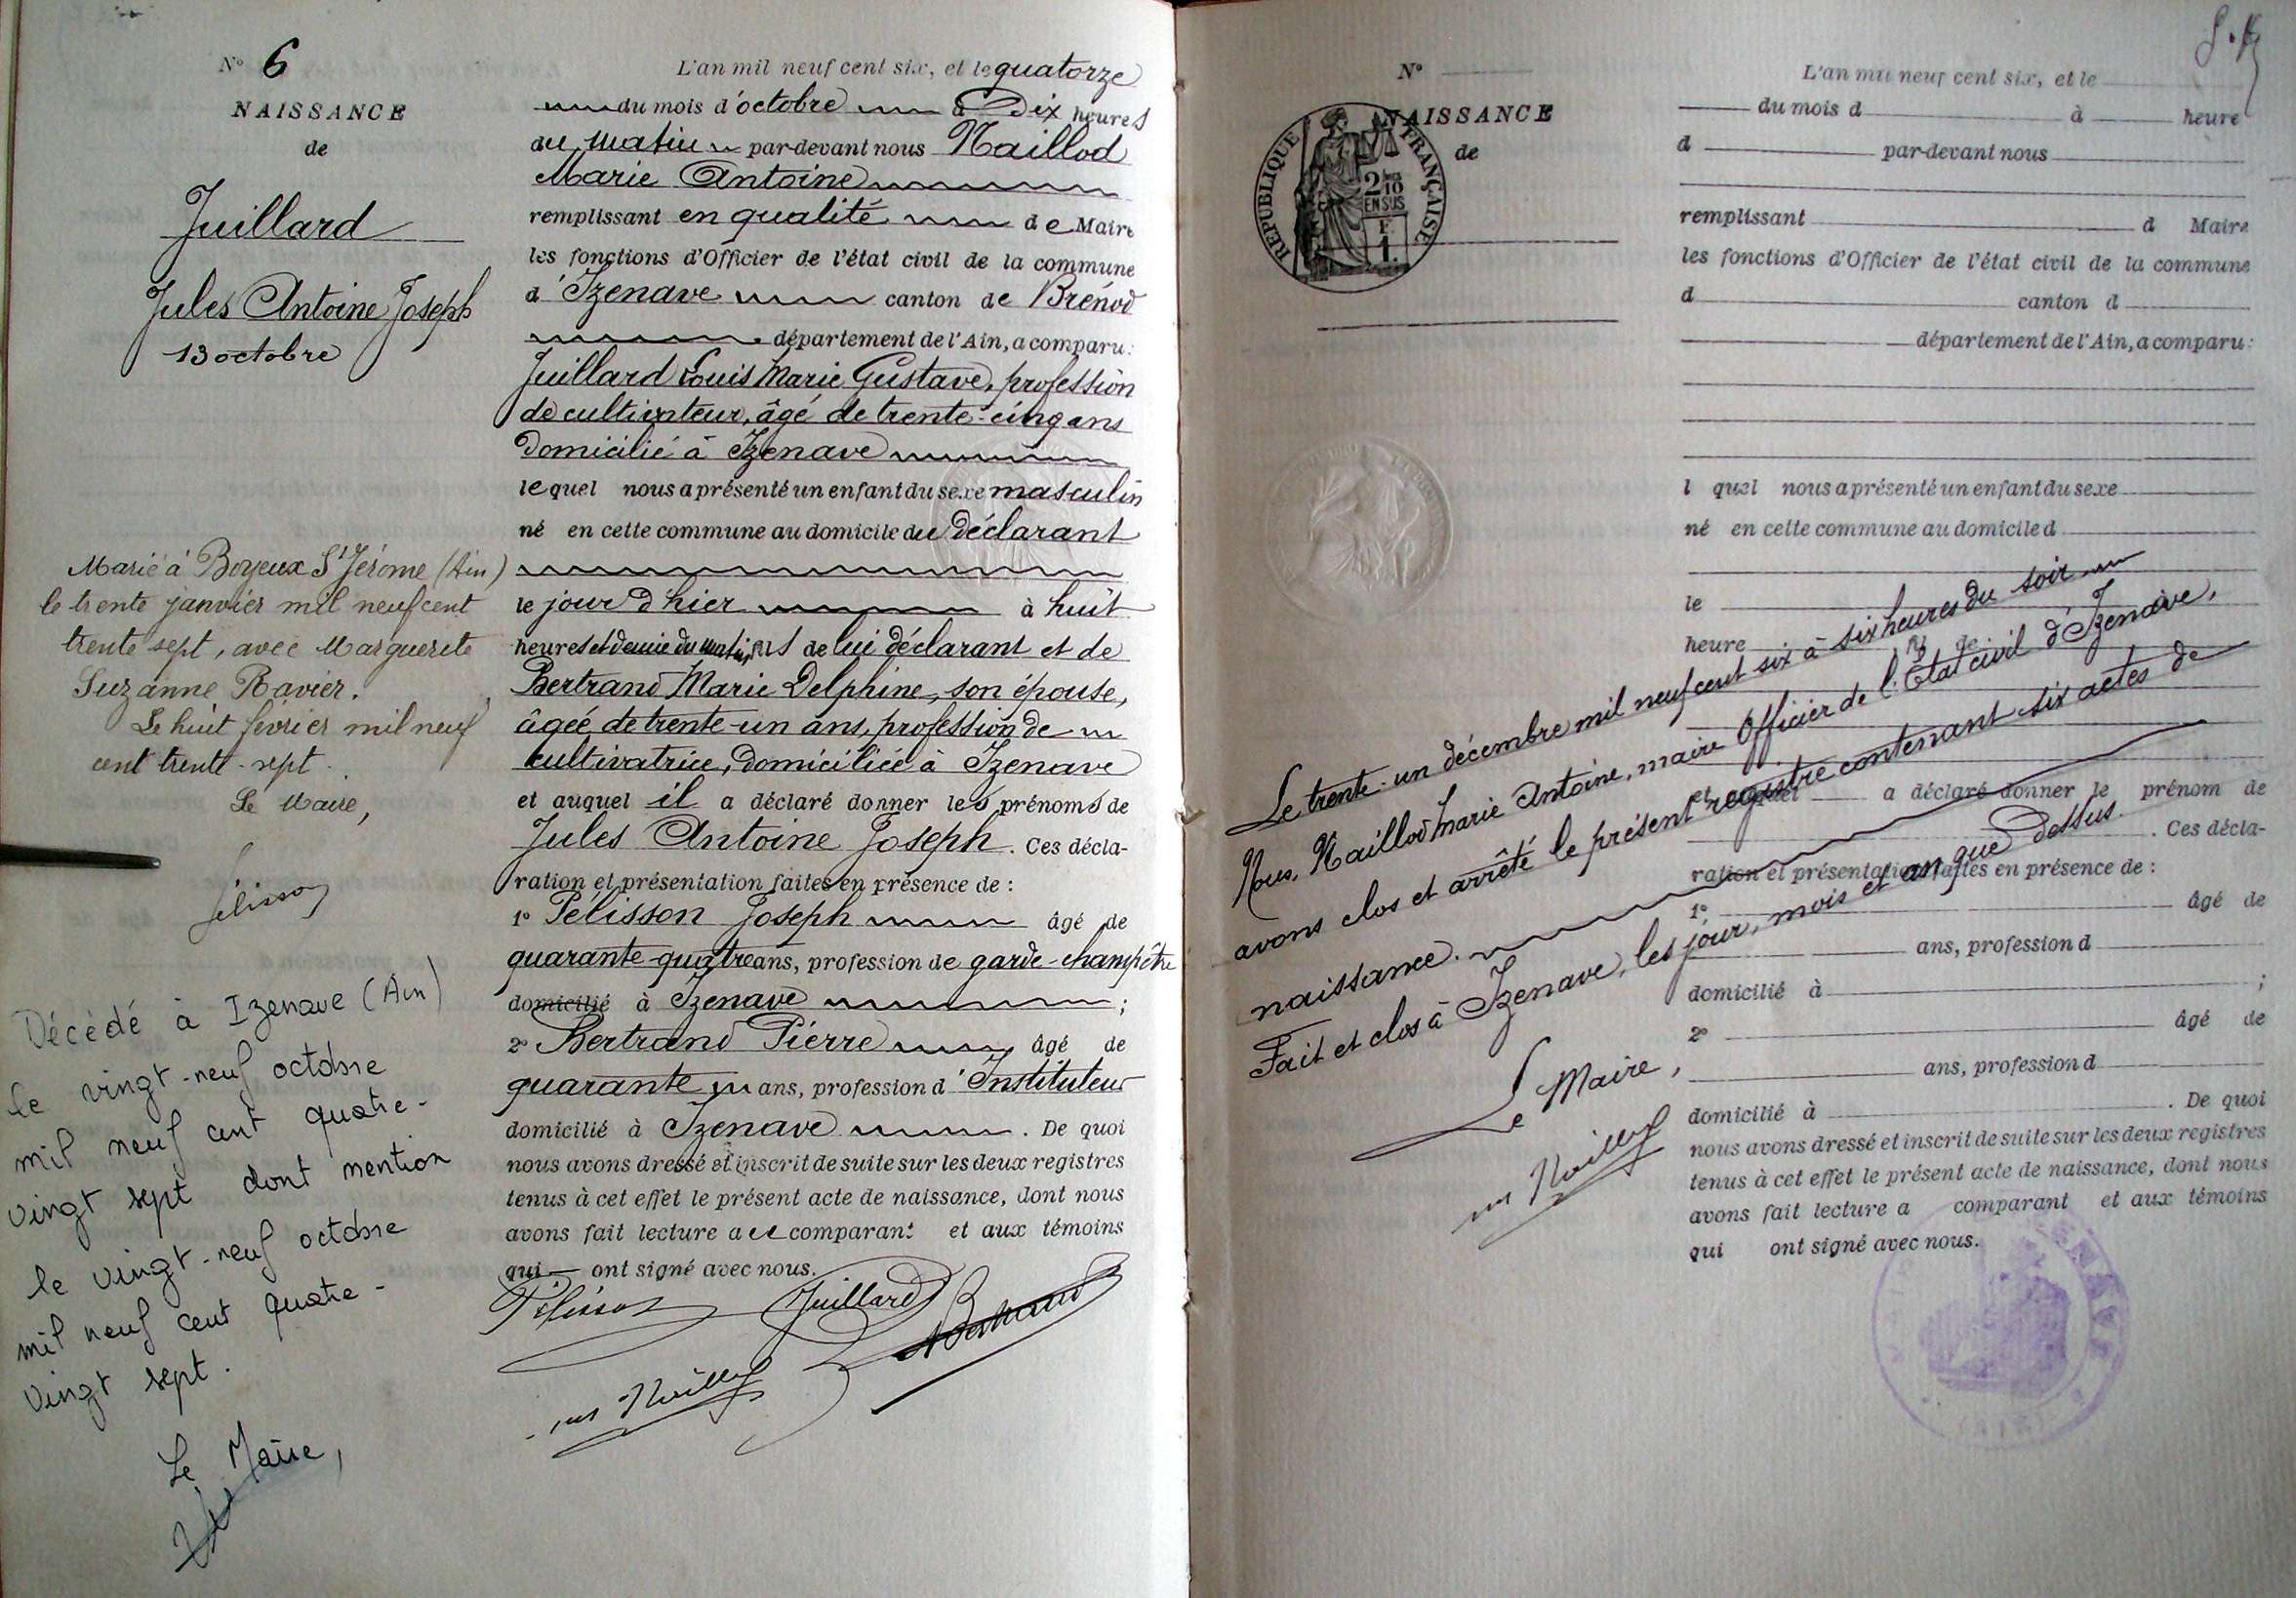 N° 6
NAISSANCE
de
Juillard
Jules Antoine Joseph
13 octobre
Marié à Boyeux St Jérome (Ain)
le trente janvier mil neuf cent
trente sept, avec Marguerite
Suzanne Ravier.
Le huit février mil neuf
cent trente-sept.
Le Maire,
Pélisson
Décédé à Izenave (Ain)
le vingt-neuf octobre
mil neuf cent quatre-
vingt sept dont mention
le vingt-neuf octobre
mil neuf cent quatre-
vingt sept.
Le Maire,
L'an mil neuf cent six, et le quatorze
du mois d'octobre à Dix heures
du matin par-devant nous Maillod
Marie Antoine
remplissant en qualité de Maire
les fonctions d'Officier de l'état civil de la commune
d'Izenave canton de Brénod
département de l'Ain, a comparu:
Juillard Louis Marie Gustave, profession
de cultivateur, âgé de trente-cinq ans
domicilié à Izenave
lequel nous a présenté un enfant du sexe masculin
né en cette commune au domicile du déclarant
le jour d'hier à huit
heures et demie du matin, de lui déclarant et de
Bertrand Marie Delphine, son épouse,
âgée de trente-un ans, profession de
cultivatrice, domiciliée à Izenave
et auquel il a déclaré donner les prénoms de
Jules Antoine Joseph. Ces décla-
ration et présentation faites en présence de :
1° Pélisson Joseph âgé de
quarante-quatre ans, profession de garde-champêtre
domicilié à Izenave ;
2° Bertrand Pierre âgé de
quarante ans, profession d'Instituteur
domicilié à Izenave . De quoi
nous avons dressé et inscrit de suite sur les deux registres
tenus à cet effet le présent acte de naissance, dont nous
avons fait lecture au comparant et aux témoins
qui ont signé avec nous.
Pélisson Juillard
A Bertrand
N°
NAISSANCE
de
REPUBLIQUE FRANÇAISE
2/10
EN SUS
F.
1.
L'an mil neuf cent six, et le
du mois d à heure
d par-devant nous
remplissant d Maire
les fonctions d'Officier de l'état civil de la commune
d canton d
département de l'Ain, a comparu:
l quel nous a présenté un enfant du sexe
né en cette commune au domicile d
le
heure de
et auquel a déclaré donner le prénom de
. Ces décla-
ration et présentation faites en présence de :
1° âgé de
ans, profession d
domicilié à ;
2° âgé de
ans, profession d
domicilié à . De quoi
nous avons dressé et inscrit de suite sur les deux registres
tenus à cet effet le présent acte de naissance, dont nous
avons fait lecture a comparant et aux témoins
qui ont signé avec nous.
Le trente-un décembre mil neuf cent six à six heures du soir
Nous, Maillod Marie Antoine, maire Officier de l'Etat civil d'Izenave,
avons clos et arrêté le présent registre contenant six actes de
naissance.
Fait et clos à Izenave, les jour, mois et an que dessus.
Le Maire,